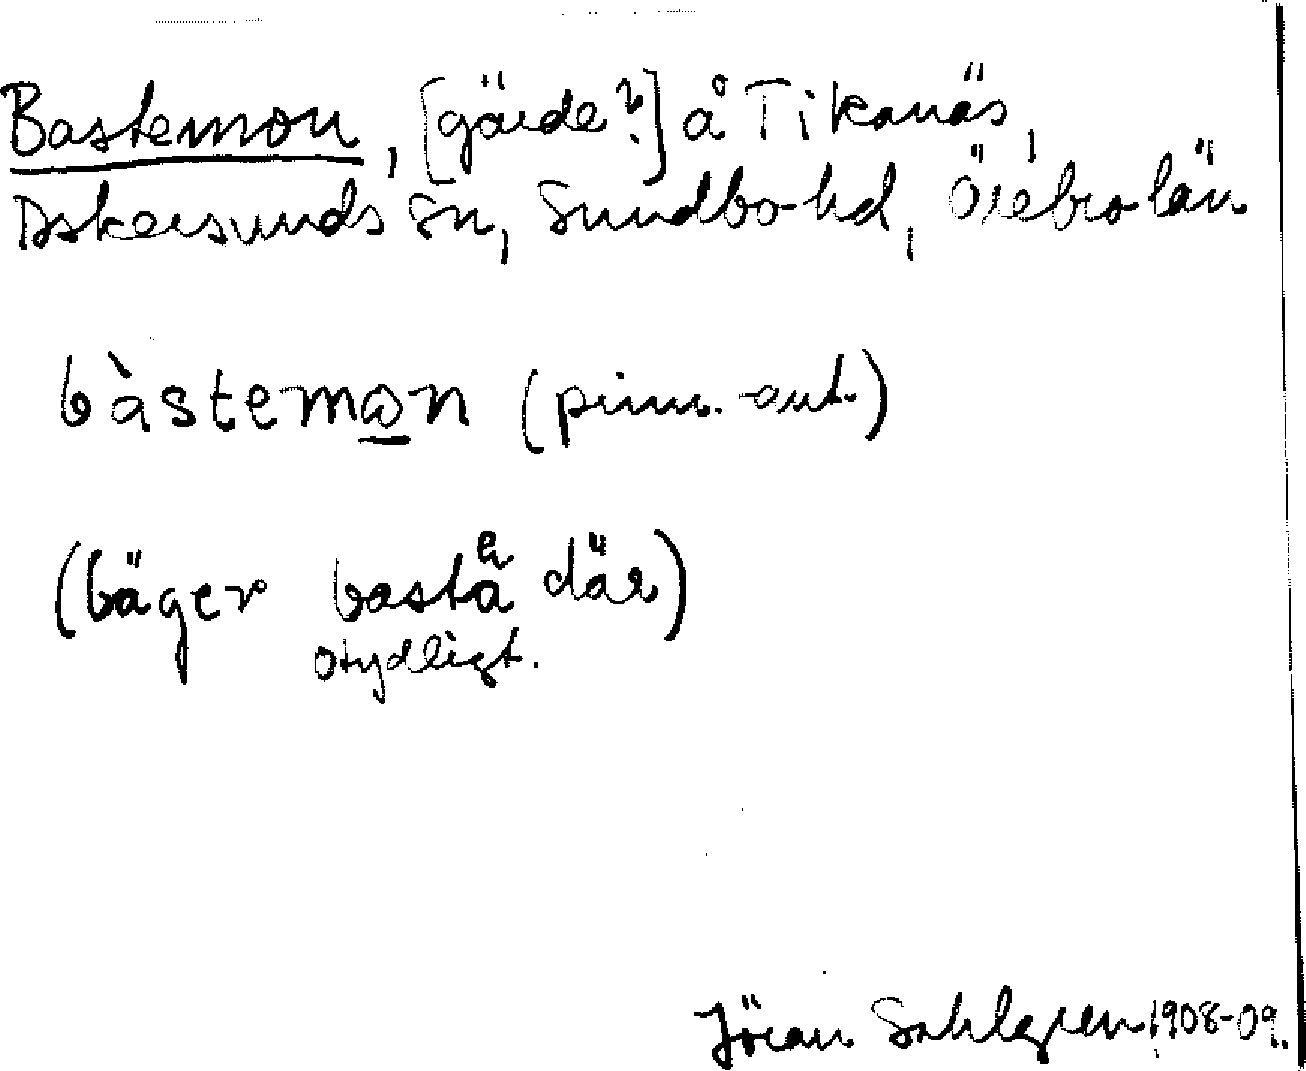 Bastemon, [gärde?] å Tikanäs,
Askersunds sn, Sundbo hd, Örebro län
bàstemøn (pinm. -ant.)
(bäger bastå där)
otydligt.
Jöran Sahlgren 1908-09.